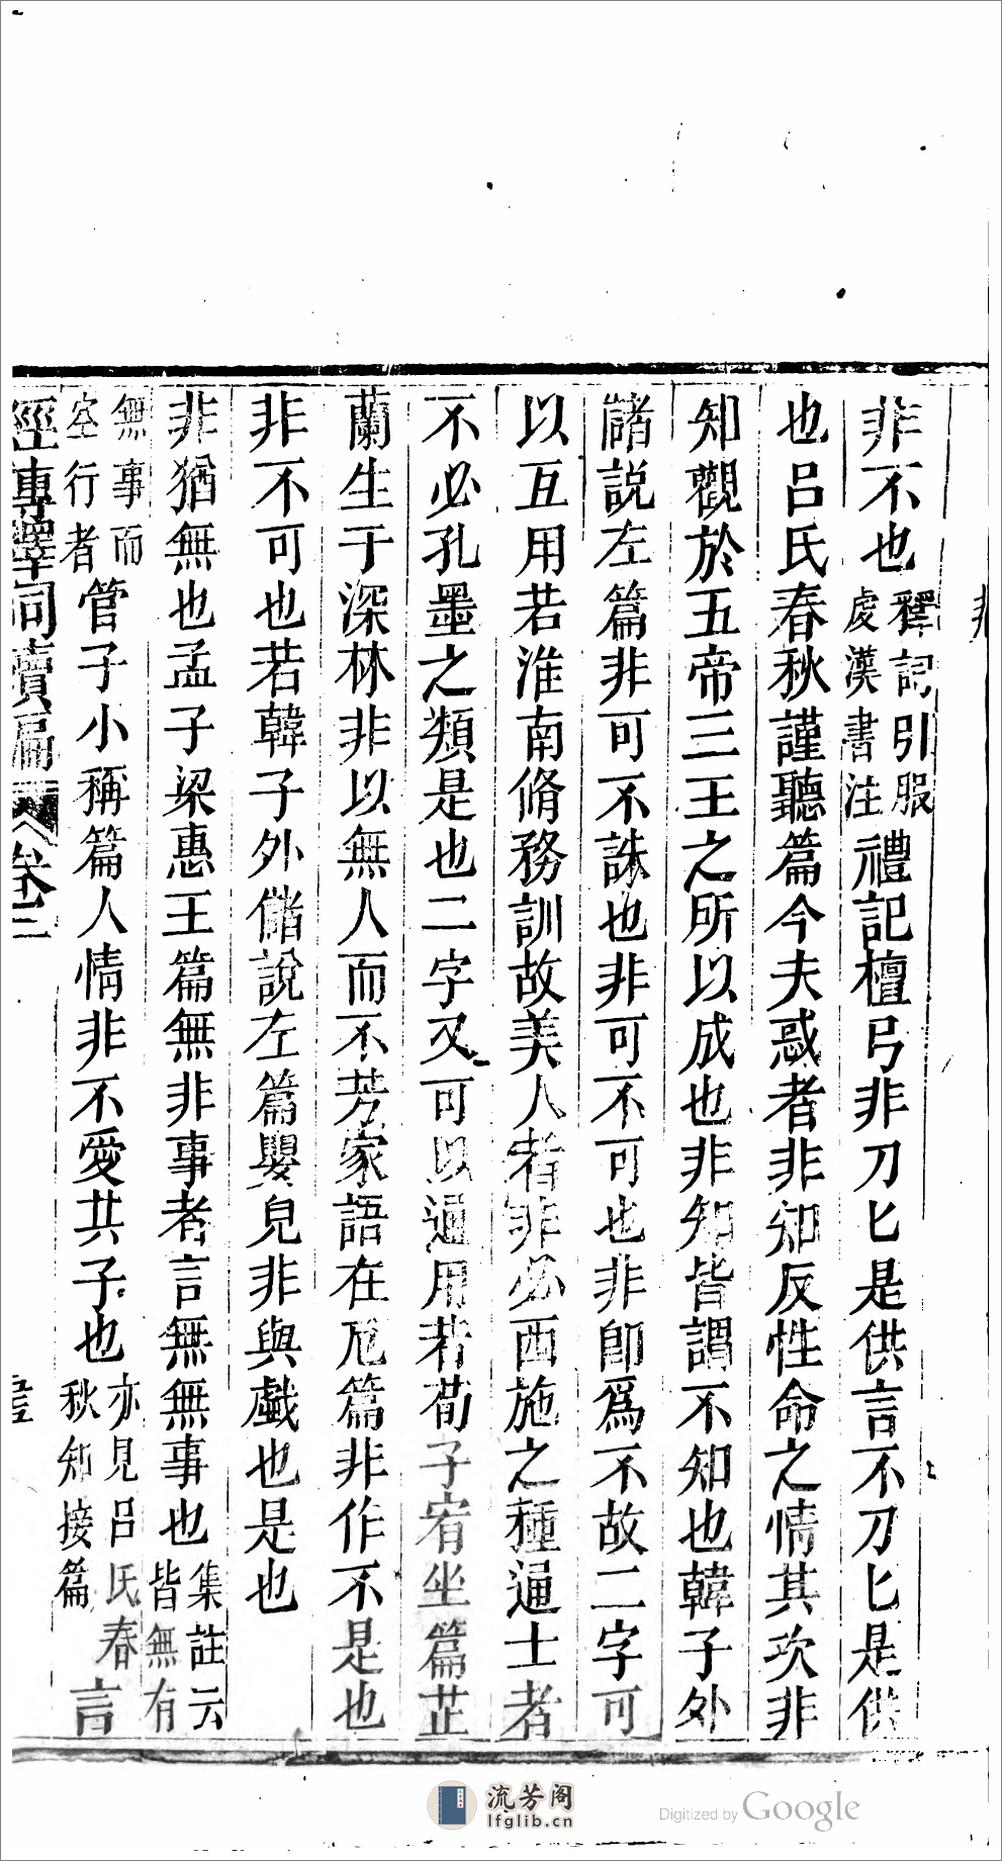 非不也釋詞引服虔漢書注禮記檀弓非刀匕是供言不刀匕是供
也呂氏春秋謹聽篇今夫惑者非知反性命之情其次非
知觀於五帝三王之所以成也非知皆謂不知也韓子外
儲説左篇非可不誅也非可不可也非卽爲不故二字可
以互用若淮南脩務訓故美人者非必西施之種通士者
不必孔墨之類是也二字又可以通用若荀子宥坐篇芷
蘭生于深林非以無人而不芳家語在厄篇非作不是也
非不可也若韓子外儲說左篇嬰兒非與戲也是也
非猶無也孟子梁惠王篇無非事者言無無事也集註云皆無有
無事而空行者管子小稱篇人情非不愛其子也亦見呂氏春秋知接篇言
經傳釋詞續編 卷二
流芳阁
lfglib.cn
Digitized by Google